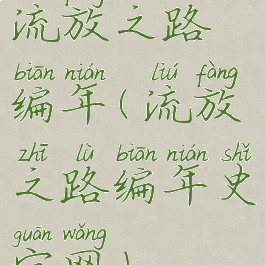 流放之路
biān nián liú fàng
编年(流放
zhī lù biān nián shǐ
之路编年史
guān wǎng
官网)